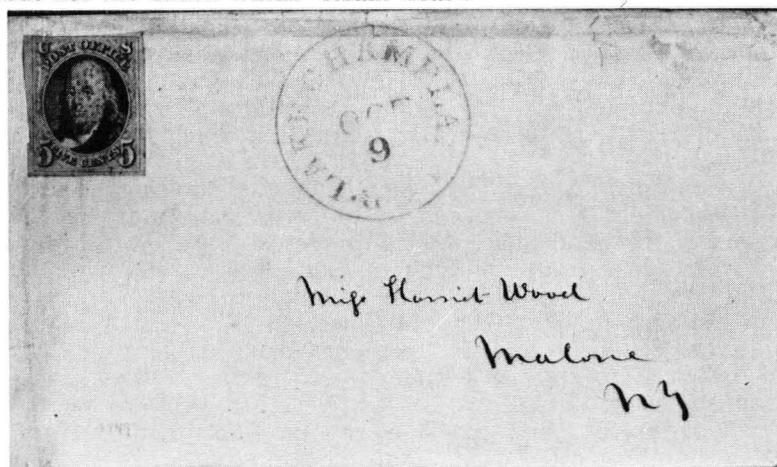 POST OFFICE
5 FIVE CENTS 5
LAKE CHAMPLA
OCT
9
Miss Harriet Wood
Malone
NY